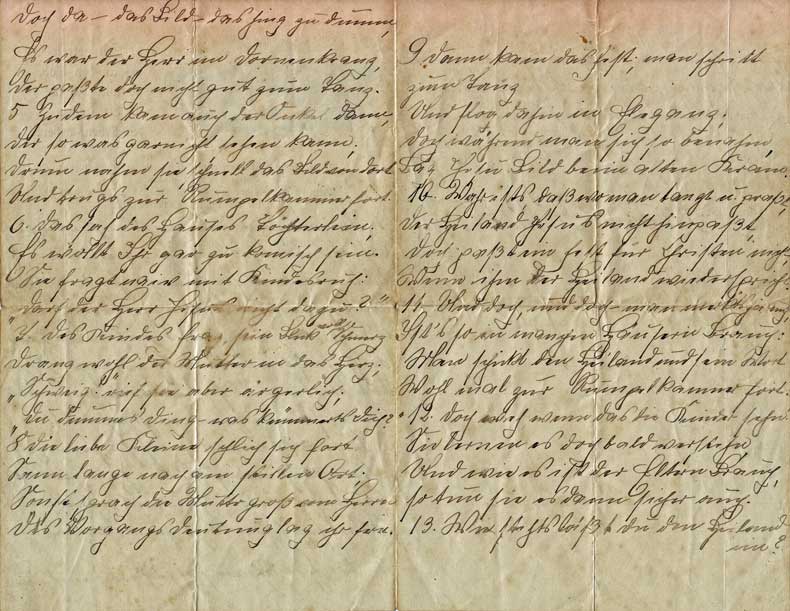 Doch da – das Bild – das hing zu dumm,
Es war der Herr im Dornenkranz,
Der paßte doch nicht gut zum Tanz.
5 Zudem kam auch der Onkel dann,
der so was garnicht sehen kann,
Drum nahm sie schnell das Bild von dort
Und trugs zur Rumpelkammer fort.
6. Das sah des Hauses Töchterlein,
Es wollt Ihr gar zu komisch sein.
Sie fragt naiv mit Kindesruh:
„Darf der Herr Jesus nicht dazu?"
7. Des Kindes Frag, sein Blick voll Schmerz
Drang wohl der Mutter in das Herz,
„Schweig!" rief sie aber ärgerlich.
„Du dummes Ding – was kümmerts dich?"
8 die liebe Kleine schlich sich fort
Sann lange nach am stillen Ort;
Sonst sprach die Mutter groß vom Herrn
Des Vorgangs Deutung lag ihr fern.
9 Dann kam das Fest, man schritt
zum Tanz
Und flog dahin in Eleganz,
Doch während man sich so benahm,
Lag Jesu Bild beim alten Kram.
10. Wahr ists, daß wo man tanzt u. praßt,
Der Heiland Jesus nicht hinpaßt,
Doch paßt ein Fest für Christen nicht
Wenn ihm der Heiland wiederspricht.
11. Und doch, und doch man
Ist's so in manchen Häusern Brauch:
Man schickt den Heiland und sein Wort
Wohl mal zur Rumpelkammer fort.
12. Doch weh wenn das die Kinder sehn
Sie lernen es doch bald verstehn,
Und wie es ist der Eltern Brauch,
so tun sie es dann sicher auch.
13. Wie stehts läßt du den Heiland
ein?